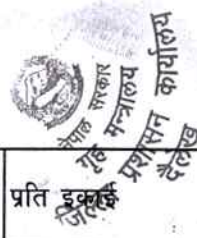 नेपाल सरकार
गृह मन्त्रालय
जिल्ला प्रशासन कार्यालय
दैलेख
प्रति इकाई